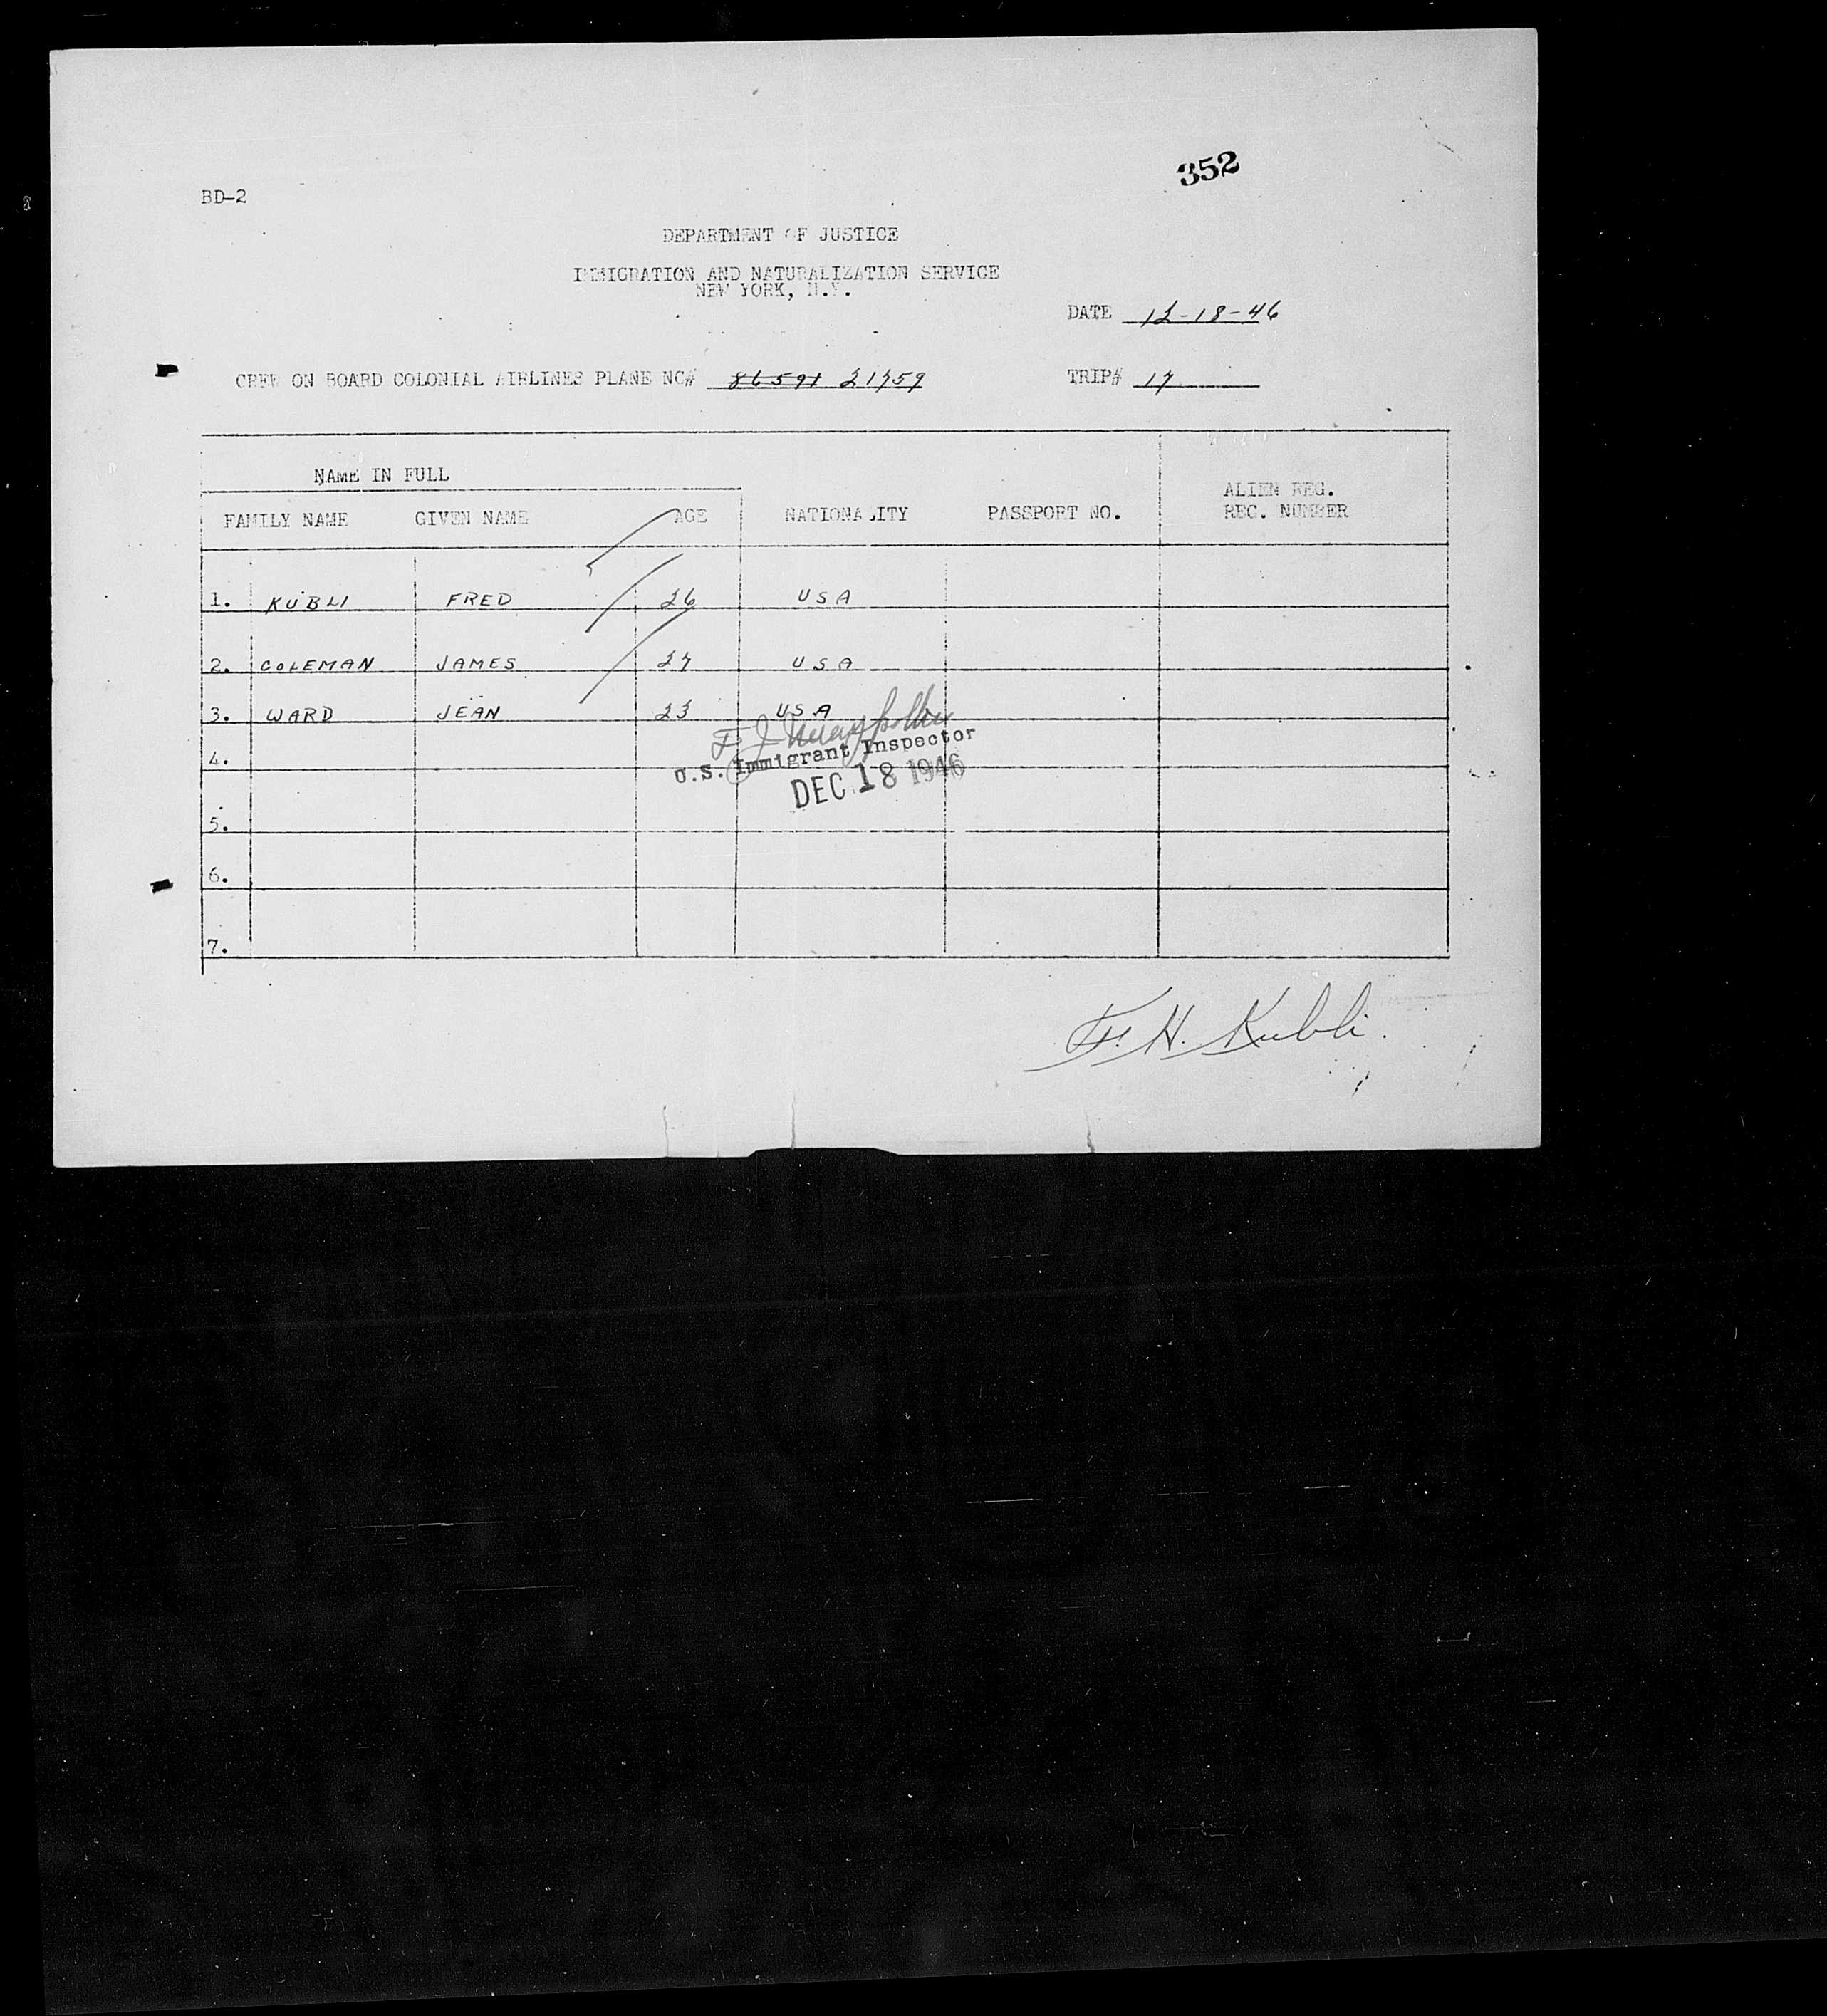 352
BD-2
DEPARTMENT OF JUSTICE
IMMIGRATION AND NATURALIZATION SERVICE
NEW YORK, N.Y.
DATE 12-18-46
CREW ON BOARD COLONIAL AIRLINES PLANE NC# 86591 21759 TRIP# 17
NAME IN FULL
ALIEN REG.
FAMILY NAME GIVEN NAME AGE NATIONALITY PASSPORT NO. REC. NUMBER
1. KUBLI FRED 26 USA
2. COLEMAN JAMES 27 USA
3. WARD JEAN 23 USA
4.
U.S. Immigrant Inspector
DEC 18 1946
5.
6.
7.
F. H. Kubli.